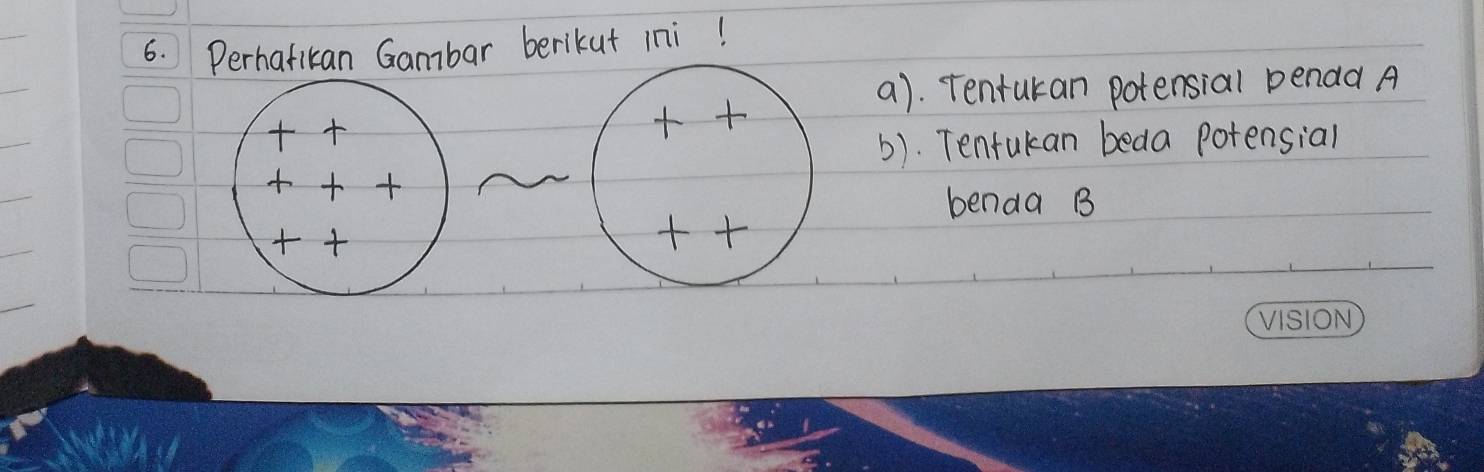 6. Perhatikan Gambar berikut ini !
+ +
+ + +
+ +
+ +
+ +
a). Tentukan potensial benda A
b). Tentukan beda potensial
benda B
VISION